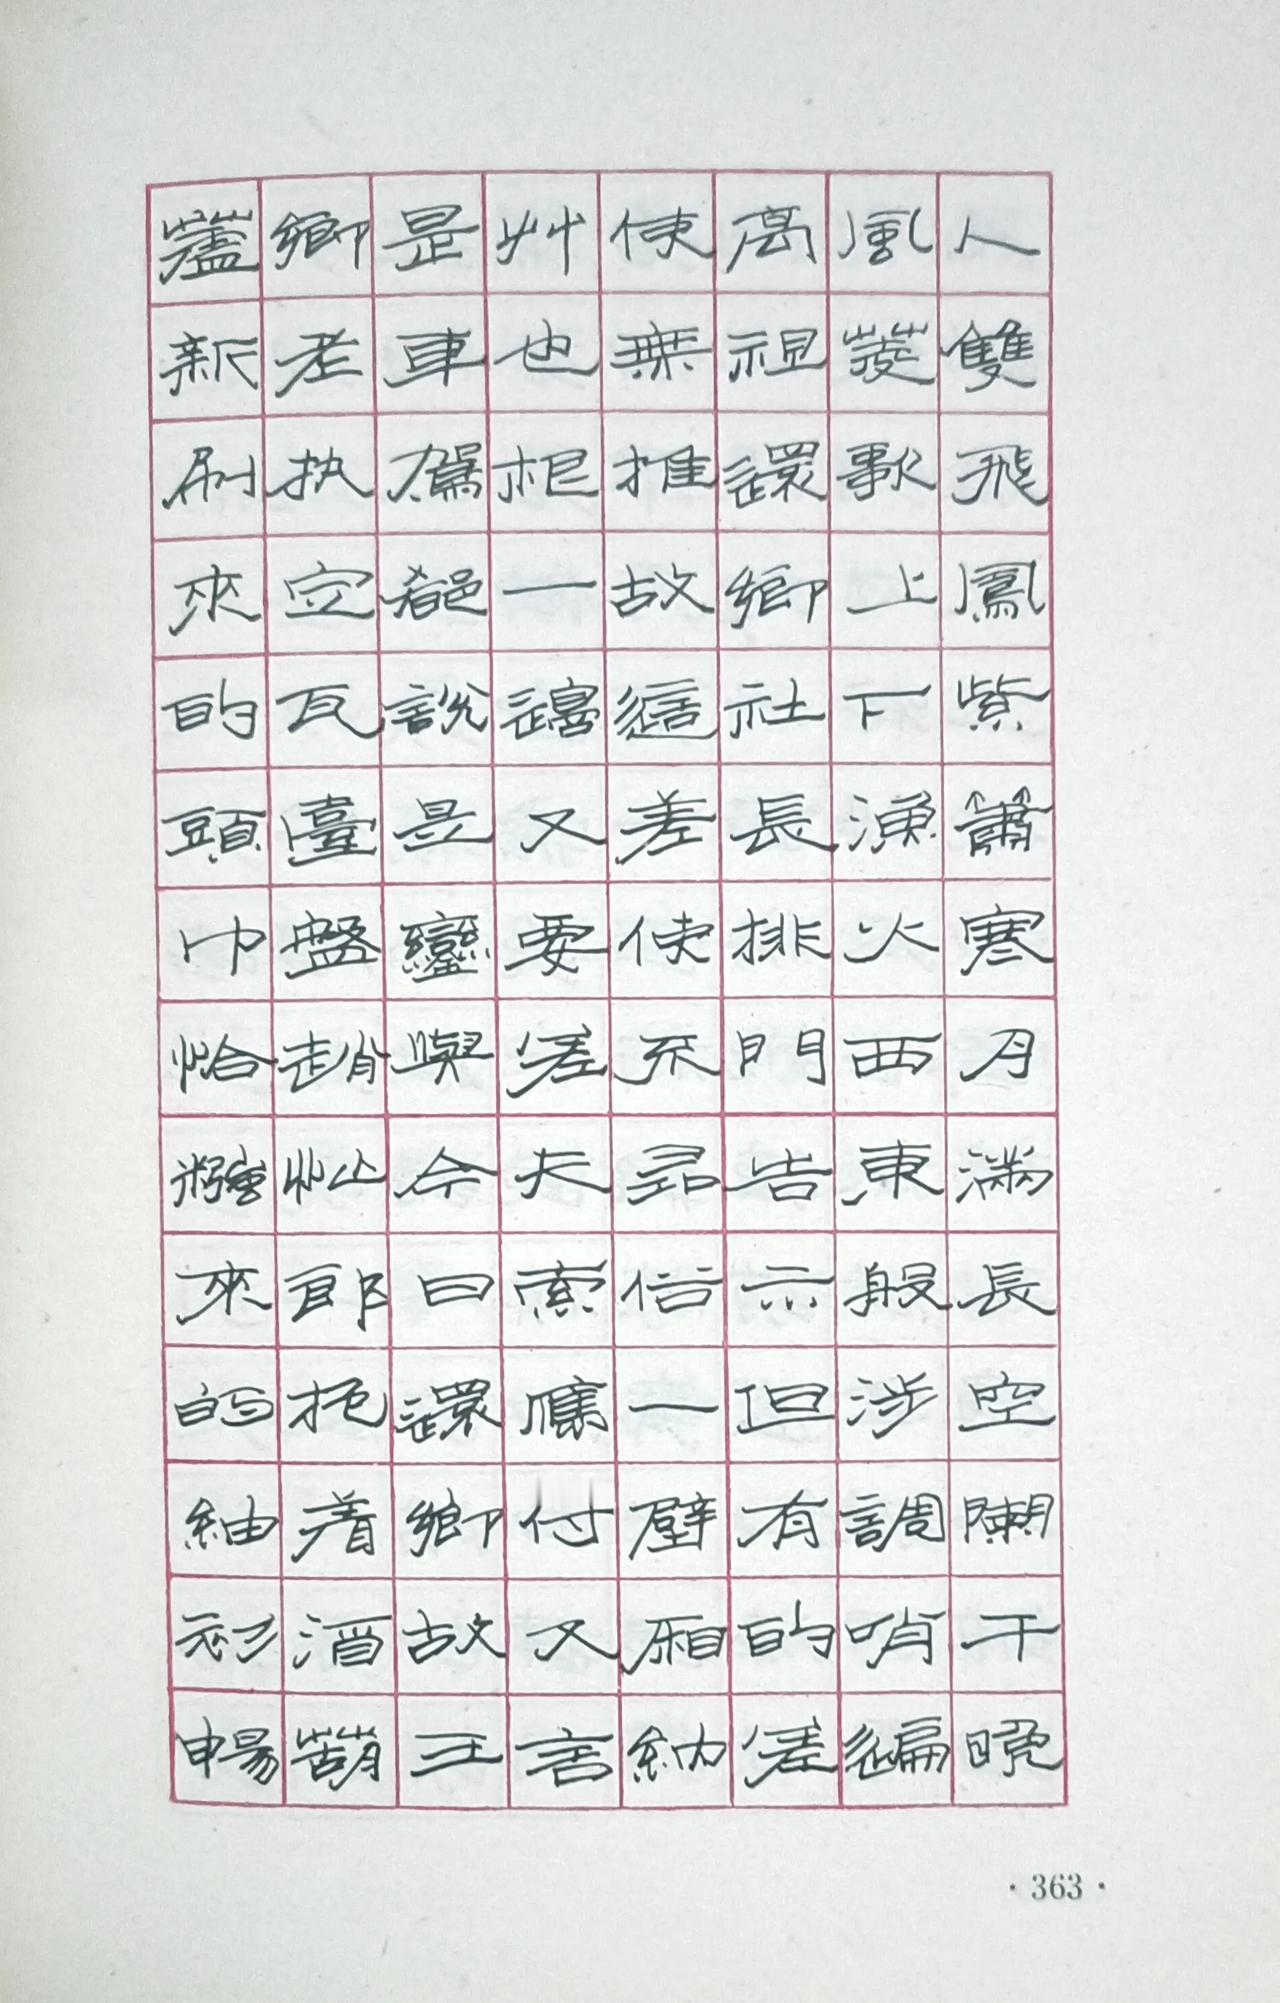 人雙飛鳳紫簫寒月滿長空闌干晚
風菱歌上下漁火西東般涉調哨遍
高祖還鄉社長排門告示但有的差
使無推故這差使不尋俗一壁廂納
艸也根一邊又要差夫索應付又言
是車駕都說是鑾輿今日還鄉故王
鄉老执定瓦臺盤趙忙郎抱着酒葫
蘆新刷來的頭巾恰糨來的紬衫暢
·363·